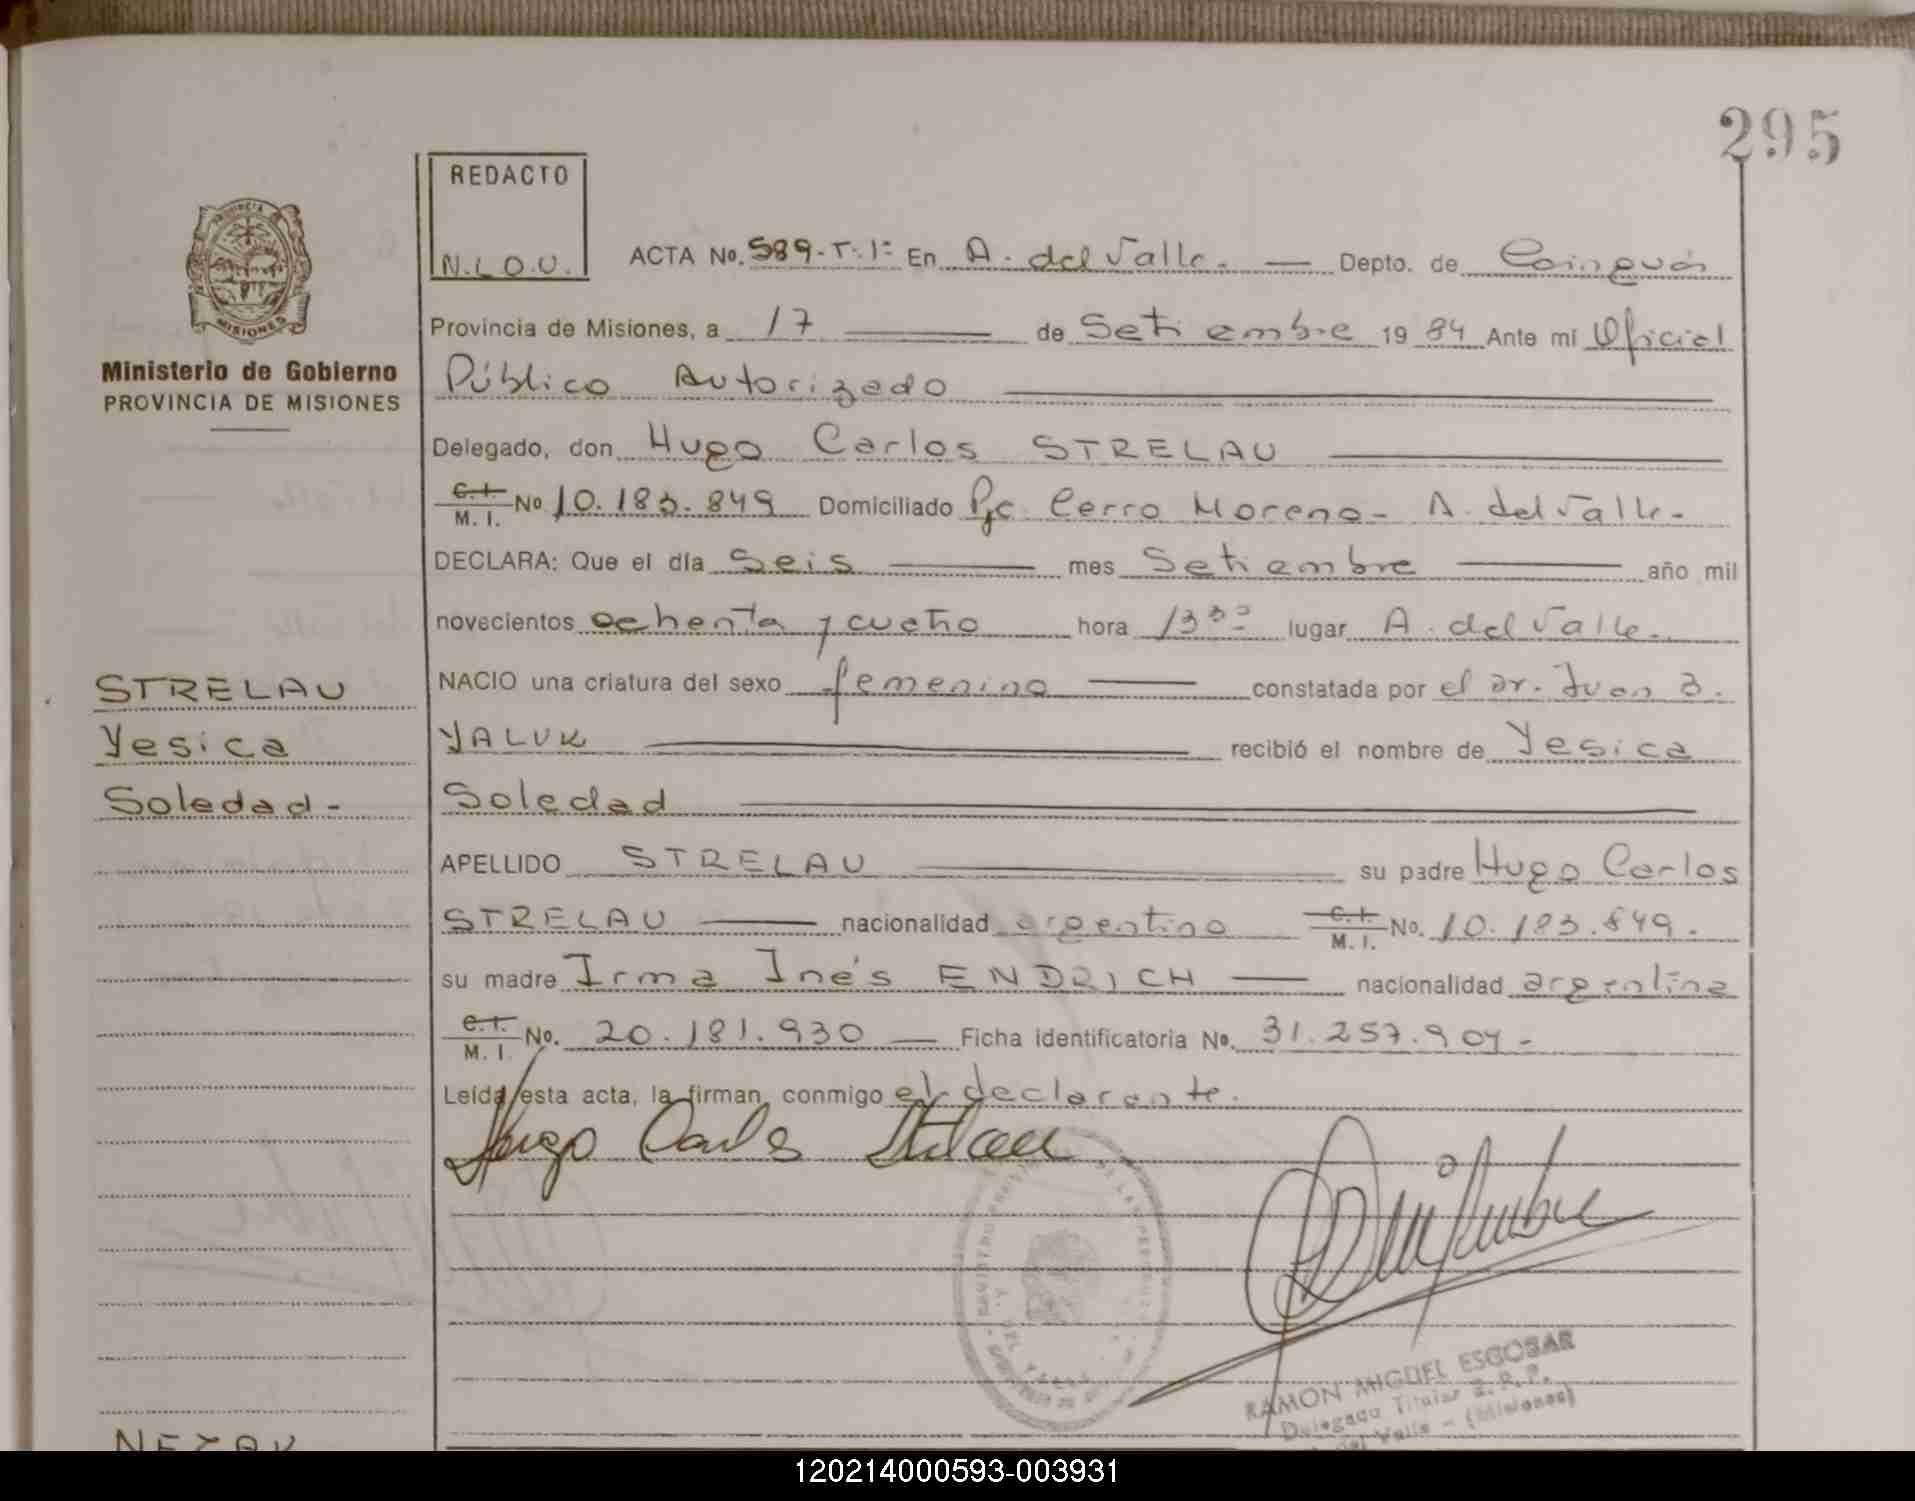 295
REDACTO
N.L.O.U.
PROVINCIA DE
MISIONES
Ministerio de Gobierno
PROVINCIA DE MISIONES
ACTA No. 589-T.1º En A. del Valle. — Depto. de Cainguás
Provincia de Misiones, a 17 — de Setiembre 1984 Ante mi Oficial
Público Autorizado —
Delegado, don Hugo Carlos STRELAU —
C.I. M.I. No 10.183.849 Domiciliado Pje. Cerro Moreno - A. del Valle -
DECLARA: Que el día Seis — mes Setiembre — año mil
novecientos ochenta y cuatro hora 13³⁰ lugar A. del Valle.
NACIO una criatura del sexo femenino — constatada por el Dr. Juan B.
YALUK — recibió el nombre de Yesica
Soledad —
APELLIDO STRELAU — su padre Hugo Carlos
STRELAU — nacionalidad argentino C.I. M.I. No. 10.183.849.
su madre Irma Inés ENDRICH — nacionalidad argentina
C.I. M.I. No. 20.181.930 — Ficha identificatoria No. 31.257.904 -
Leída esta acta, la firman conmigo el declarante.
Hugo Carlos Strelau
STRELAU
Yesica
Soledad -
RAMON MIGUEL ESCOBAR
Delegado Titular R.P.P.
del Valle - (Misiones)
120214000593-003931